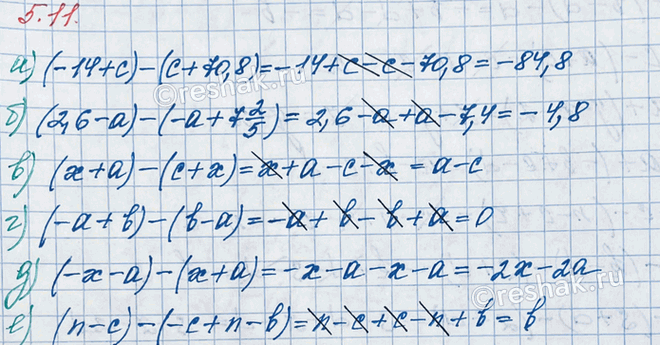 5.11.
а) (-14+c)-(c+70,8)=-14+c-c-70,8=-84,8
б) (2,6-a)-(-a+7 2/5)=2,6-a+a-7,4=-4,8
в) (x+a)-(c+x)=x+a-c-x=a-c
г) (-a+b)-(b-a)=-a+b-b+a=0
д) (-x-a)-(x+a)=-x-a-x-a=-2x-2a
е) (n-c)-(-c+n-b)=n-c+c-n+b=b
©reshak.ru